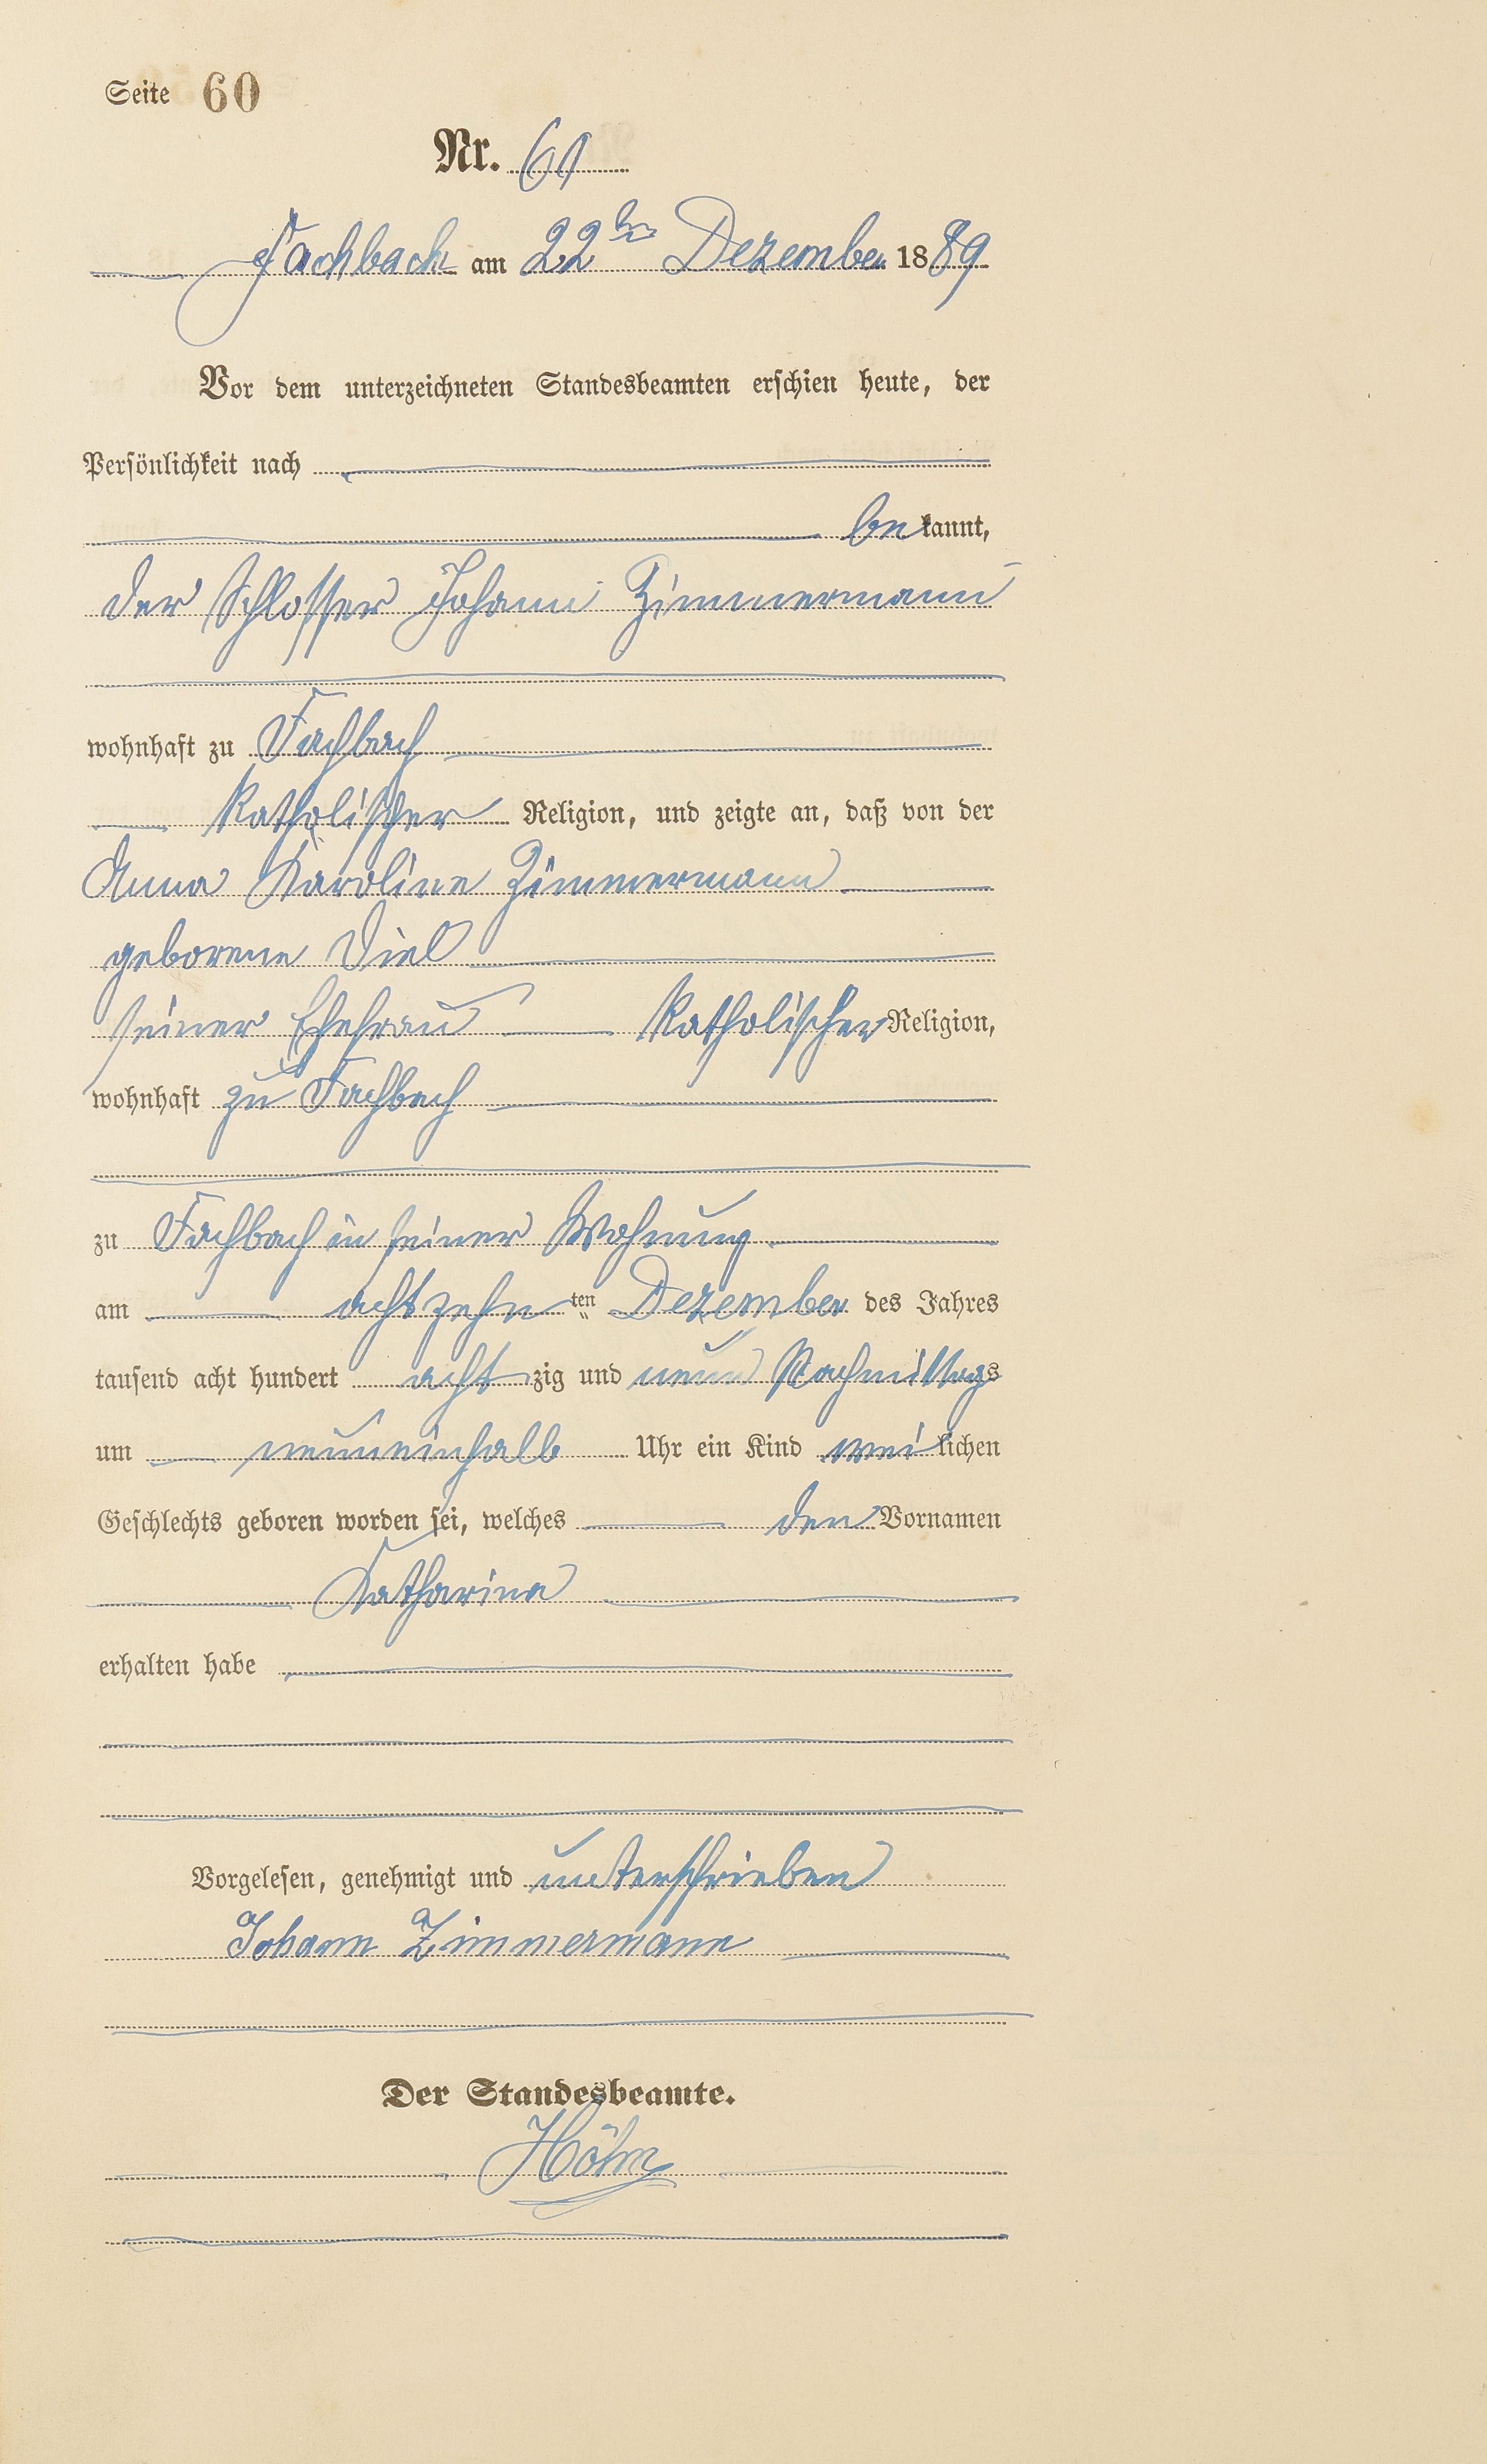 Seite 60
Nr. 61
Fachbach am 22ten Dezember 1889
Vor dem unterzeichneten Standesbeamten erschien heute, der
Persönlichkeit nach
bekannt,
der Schlosser Johann Zimmermann
wohnhaft zu Fachbach
katholischer Religion, und zeigte an, daß von der
Anna Karoline Zimmermann
geborene Diel
seiner Ehefrau katholischer Religion,
wohnhaft zu Fachbach
zu Fachbach in seiner Wohnung
am achtzehnten Dezember des Jahres
tausend acht hundert achtzig und neun Nachmittags
um neuneinhalb Uhr ein Kind weilichen
Geschlechts geboren worden sei, welches den Vornamen
Katharina
erhalten habe
Vorgelesen, genehmigt und unterschrieben
Johann Zimmermann
Der Standesbeamte.